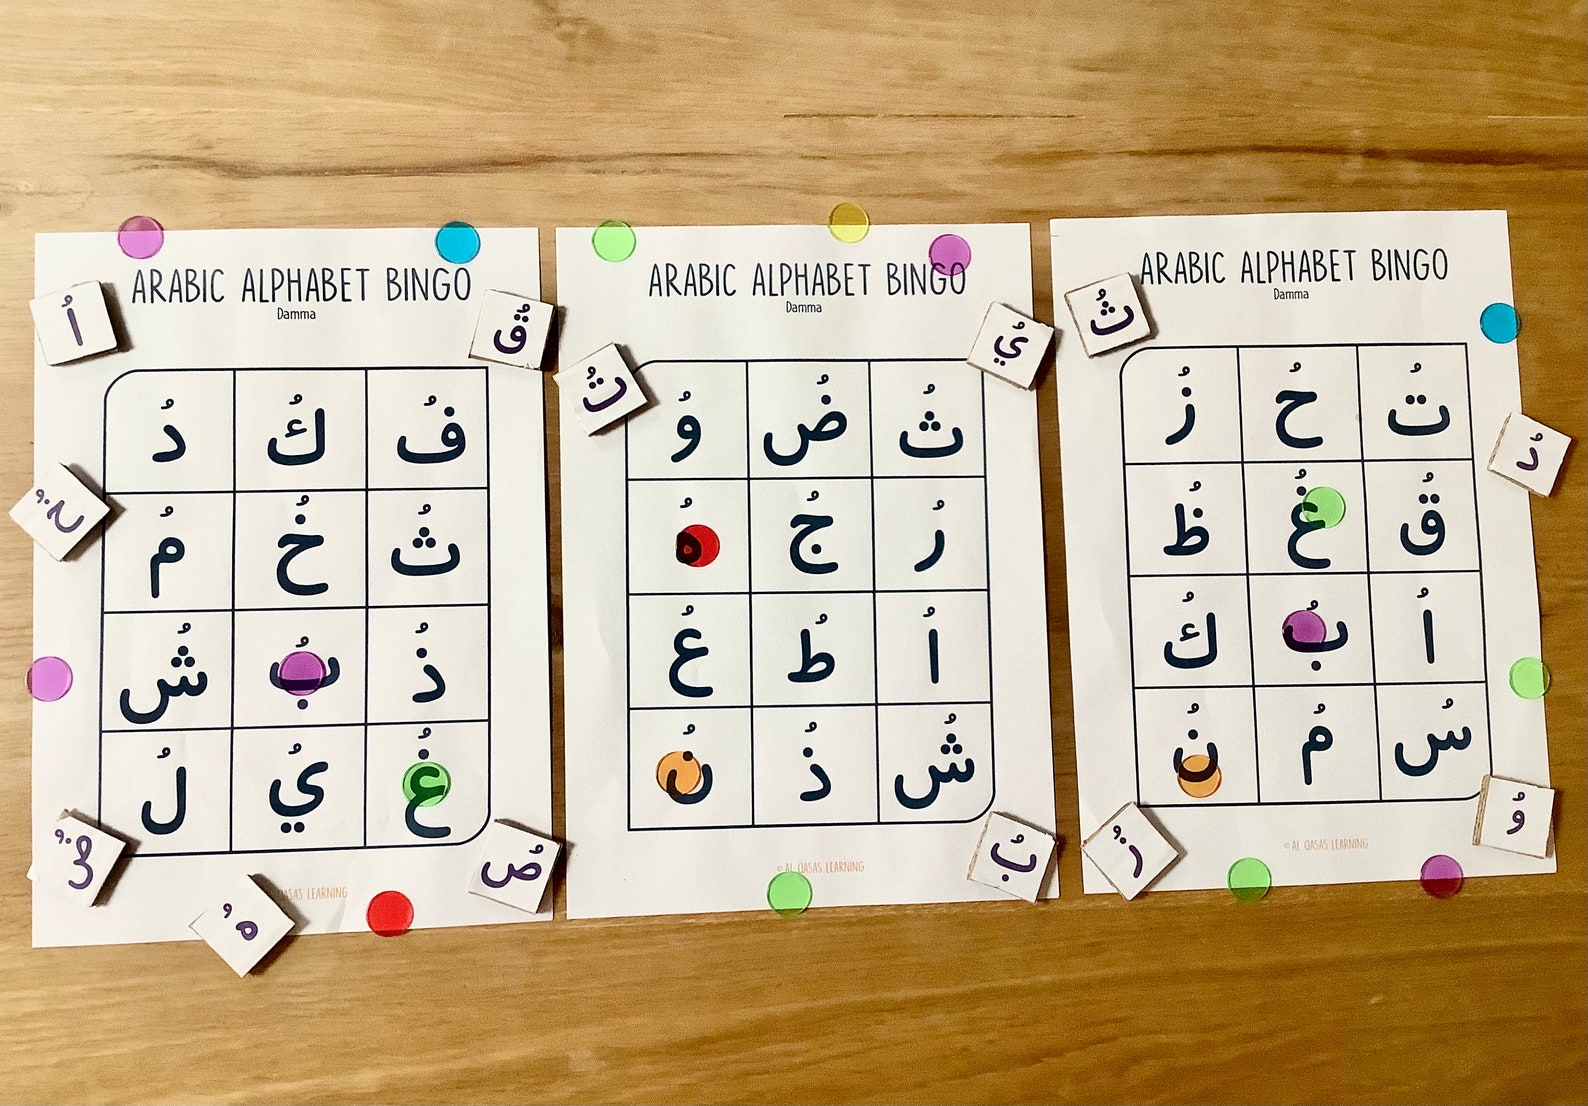 ARABIC ALPHABET BINGO
Damma
فُ كُ دُ
ثُ خُ مُ
ذُ بُ شُ
غُ يُ لُ
QASAS LEARNING
اُ
قُ
صُ
هُ
ARABIC ALPHABET BINGO
Damma
ثُ ضُ وُ
رُ جُ هُ
اُ طُ عُ
شُ ذُ نُ
© AL QASAS LEARNING
تُ
يُ
بُ
ARABIC ALPHABET BINGO
Damma
تُ حُ زُ
قُ غُ ظُ
اُ بُ كُ
سُ مُ نُ
© AL QASAS LEARNING
ثُ
دُ
زُ
وُ